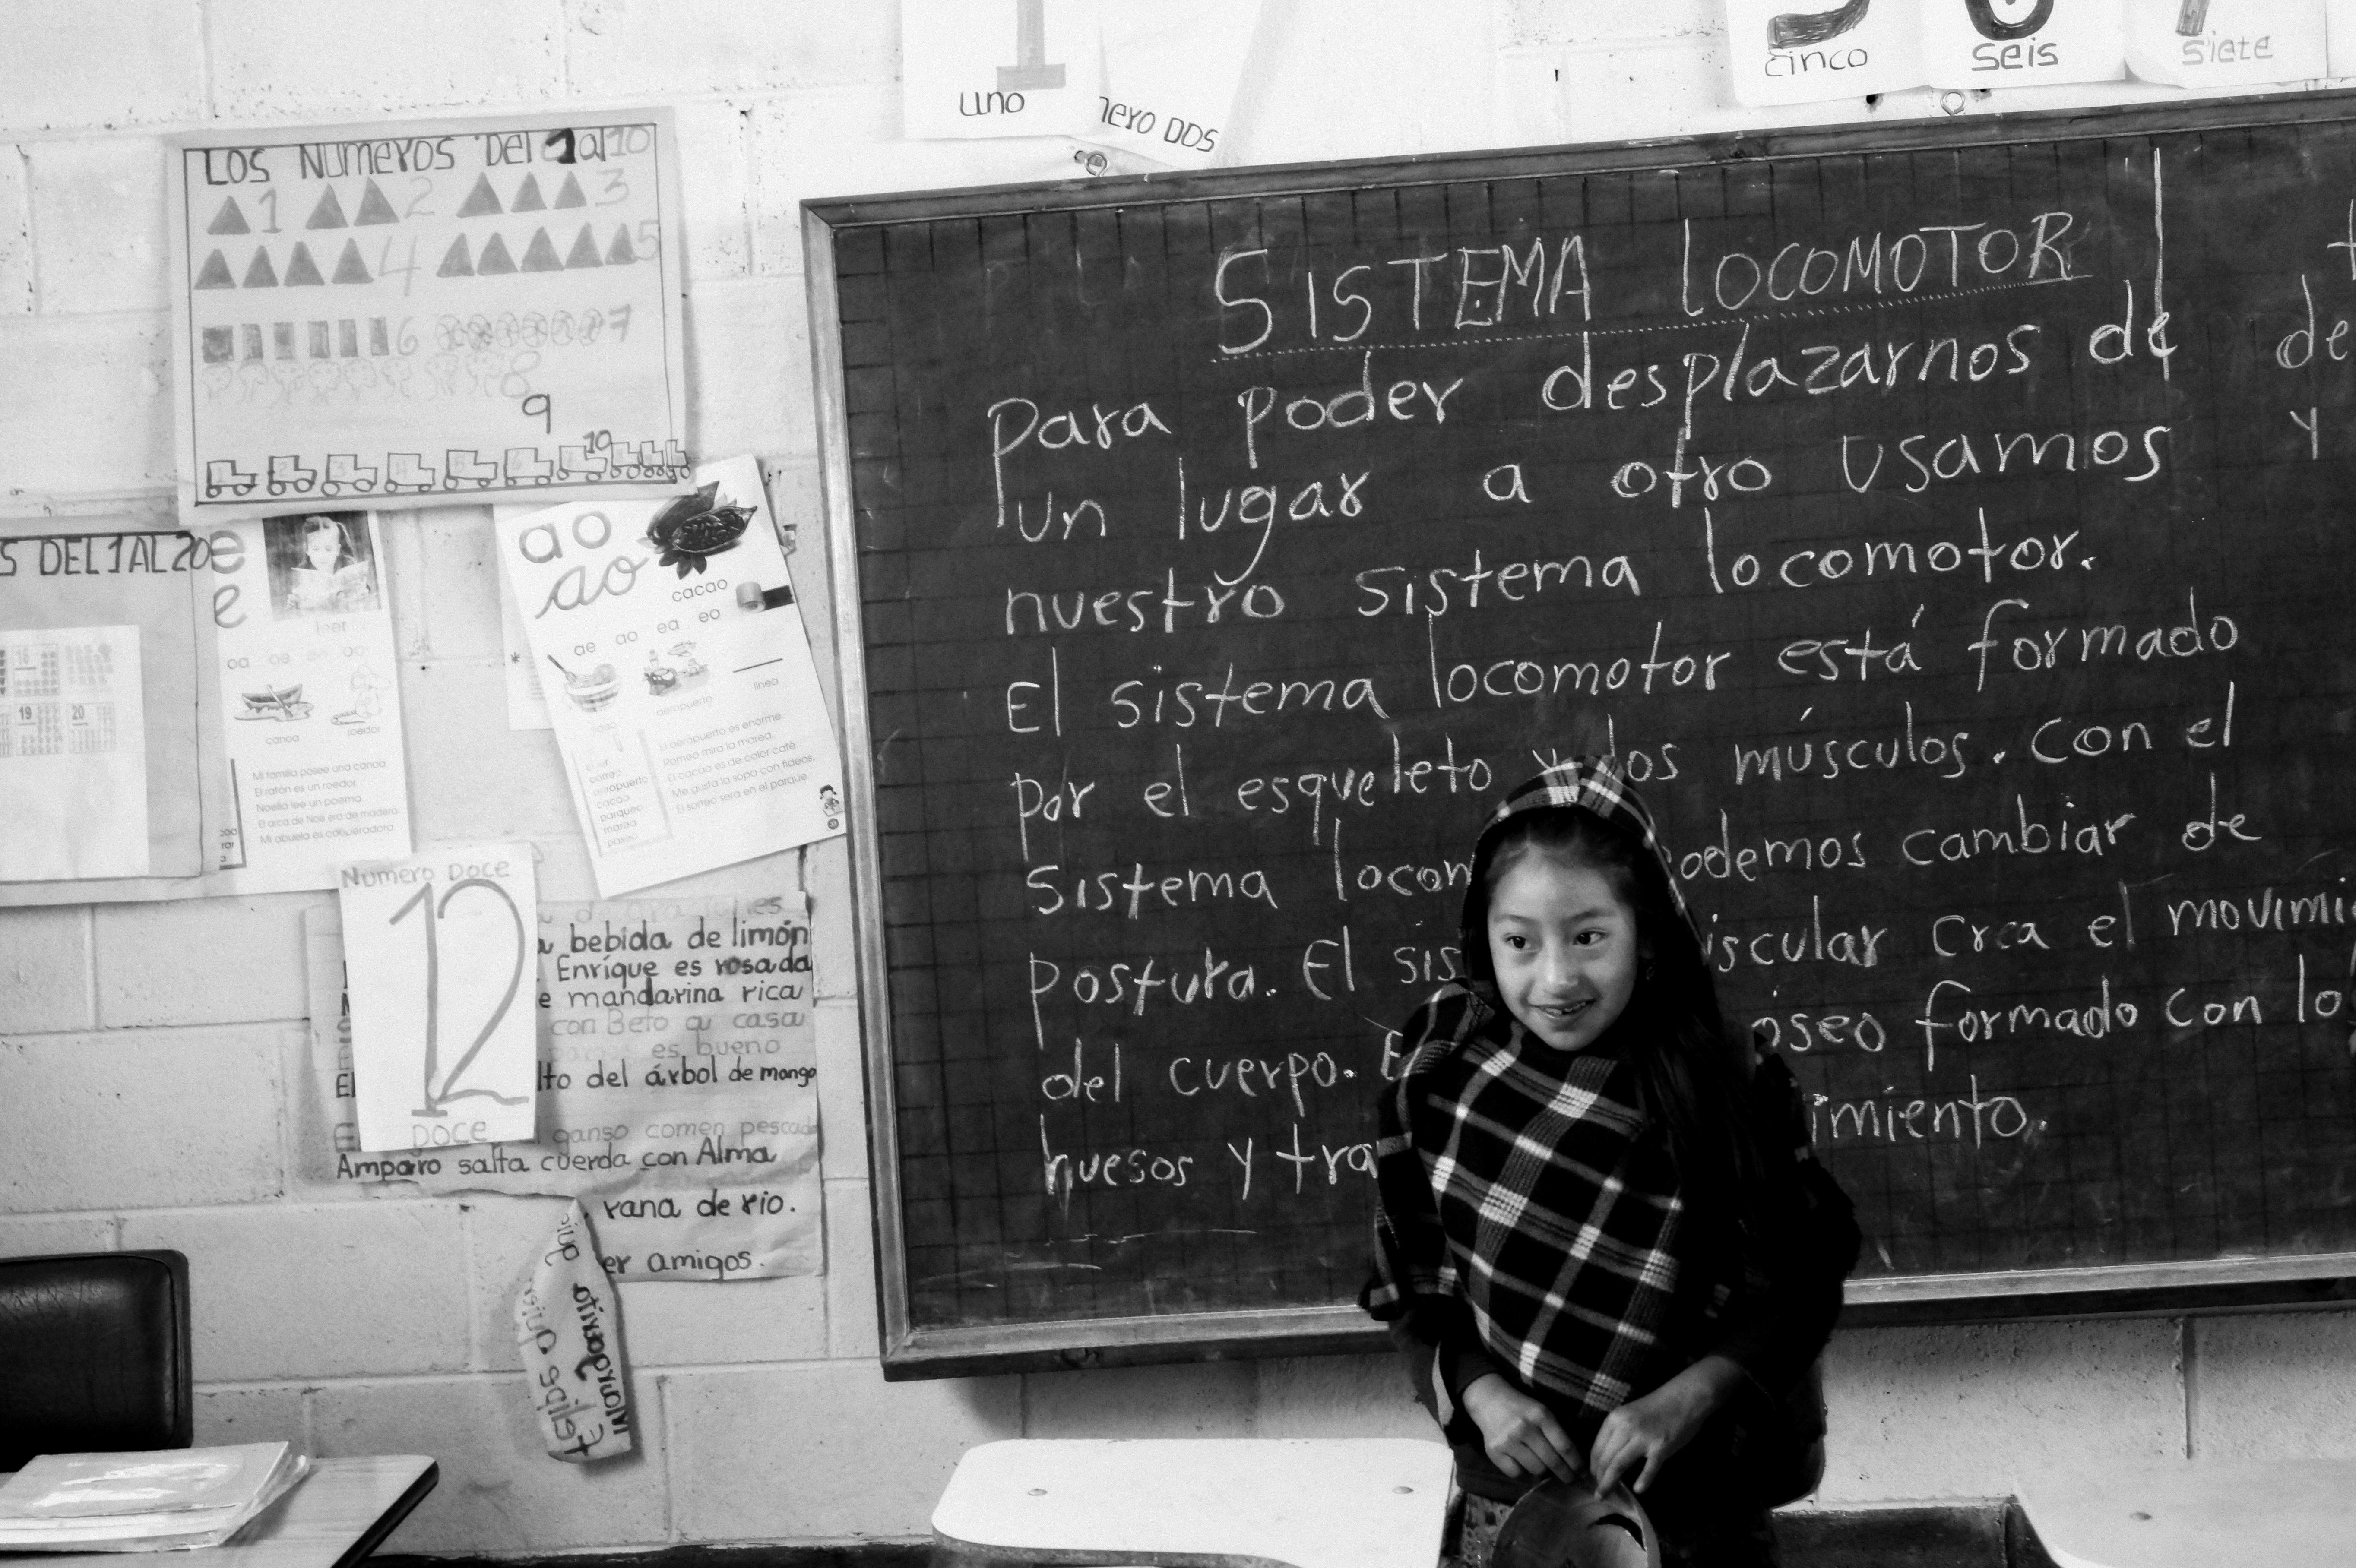 uno
DOS
cinco
seis
siete
LOS NUMEROS DEL 1 al 10
1 2 3
4 5
6 7
8
9
10
S DEL 1 AL 20
16
19 20
e
e
leer
oa oe ao
canoa roedor
Mi familia posee una canoa.
El ratón es un roedor.
Noelia lee un poema.
El arca de Noé era de madera.
Mi abuela es cooperadora
ao
ao
cacao
ae ao ea eo
aeropuerto
línea
El aeropuerto es enorme.
Romeo mira la marea.
El cacao es de color café.
Me gusta la sopa con fideos.
El sorteo será en el parque.
aeropuerto
cacao
parqueo
marea
paseo
Numero Doce
12
DOCE
a bebida de limón
Enrique es rosada
e mandarina rica
con Beto a casa
es bueno
El lto del árbol de mango
ganso comen pescado
Amparo salta cuerda con Alma
rana de rio.
er amigos.
SISTEMA LOCOMOTOR
Para poder desplazarnos de
un lugar a otro usamos
nuestro sistema locomotor.
El sistema locomotor está formado
por el esqueleto y los músculos. Con el
Sistema locom podemos cambiar de
postura. El sis uscular crea el movimi
del cuerpo. E oseo formado con lo
huesos y tra imiento.
de
y